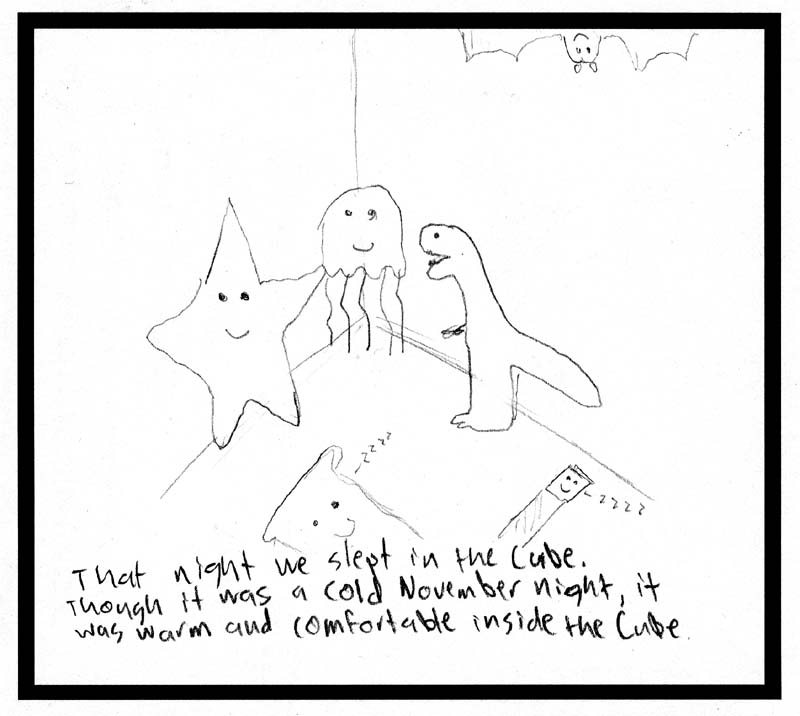 zzzz
zzzz
That night we slept in the Cube.
Though it was a cold November night, it
was warm and comfortable inside the Cube.